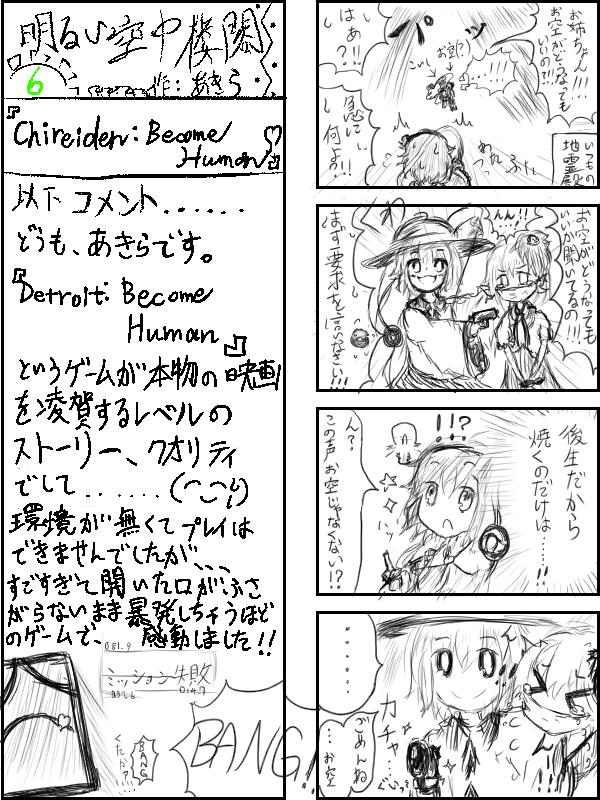 明るい空中楼閣
6
作：あきら
『Chireiden: Become
Human♡』
以下コメント......
どうも、あきらです。
『Detroit: Become
Human』
というゲームが本物の映画
を凌賀するレベルの
ストーリー、クオリティ
でして.......(^-^;)
環境が無くてプレイは
できませんでしたが、、、
すごすぎて開いた口がふさ
がらないまま暴発しちゃうほど
のゲームで、感動しました!!
ミッション失敗
BANG!
BANG
いつもの
地霊殿
お姉ちゃん!!
お空がどうなっても
いいの?!!
ポッ
お空!?
...!!!
はぁ?!!
急に
何よ!!
お空がどうなっても
いいか聞いてるの!!!
んん!!
まず要求を言いなさい!!!
後生だから
焼くのだけは……!!
!!?
ん?
この声お空じゃなくない!?
......
ごめんね
...お空
カチャ...